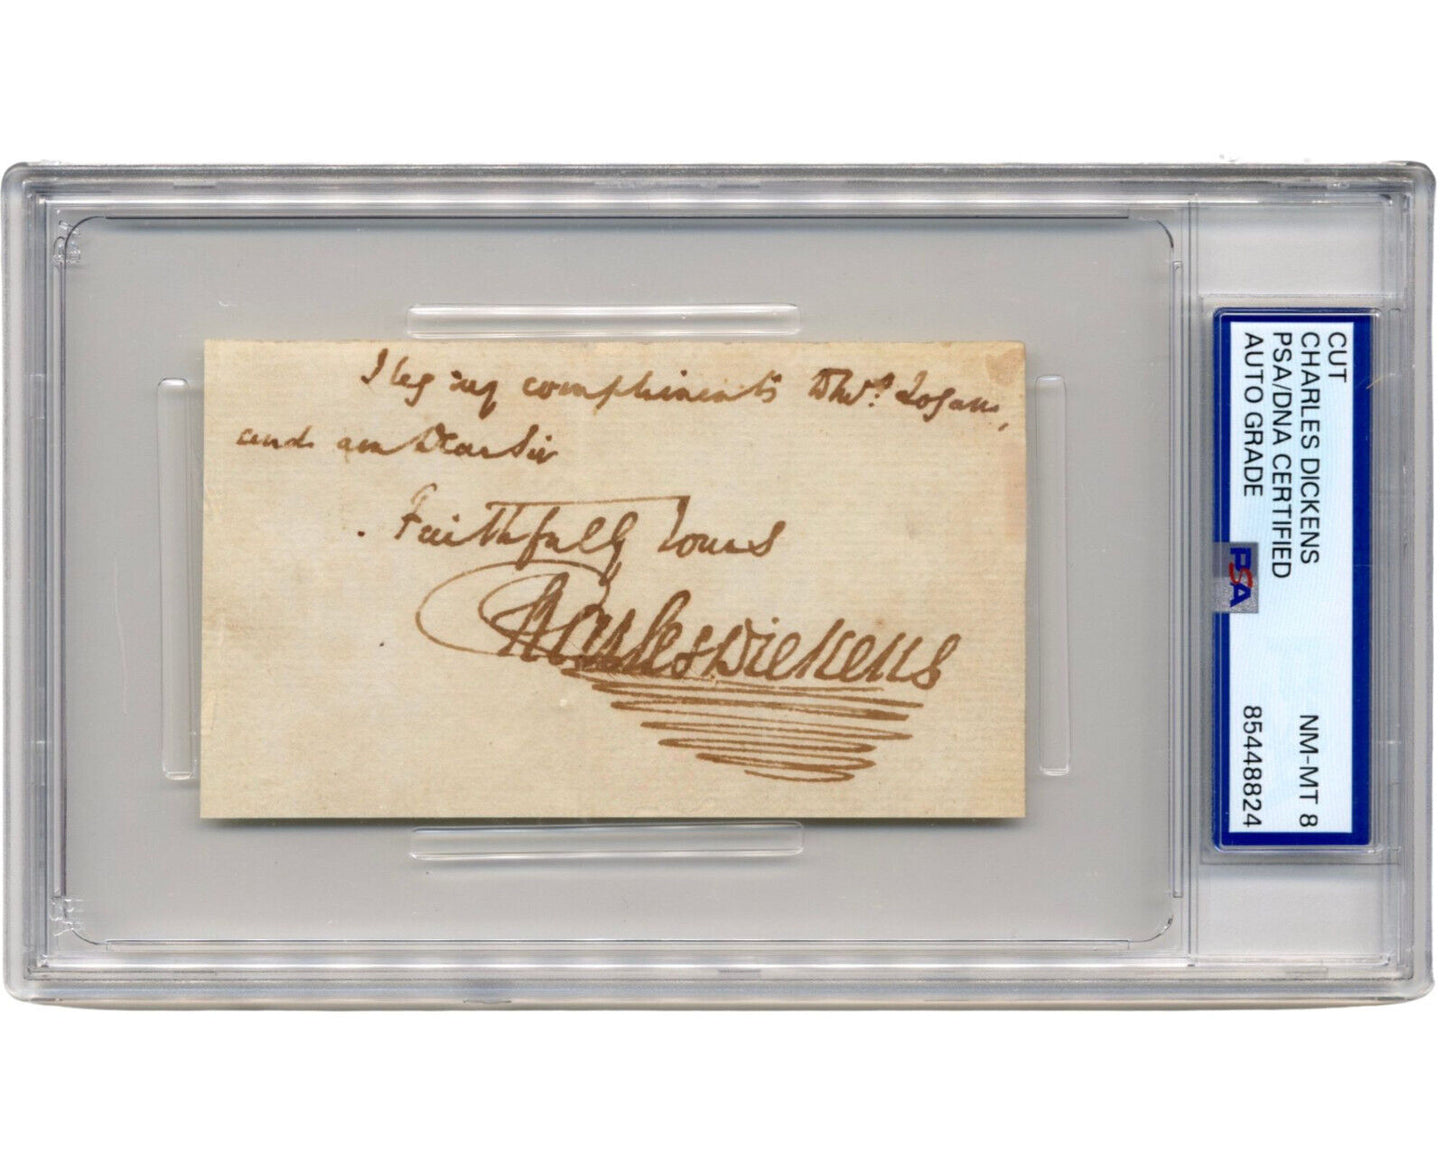 I beg my compliments to Mrs. Logan,
and am Dear Sir
Faithfully Yours
Charles Dickens
CUT
CHARLES DICKENS
PSA/DNA CERTIFIED
AUTO GRADE
NM-MT 8
85448824
PSA